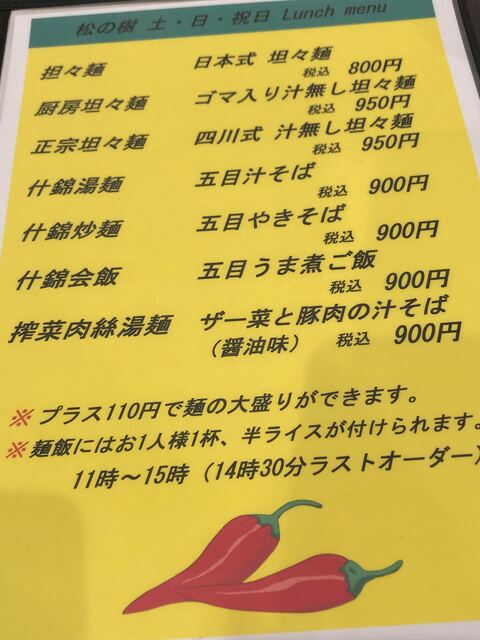 松の樹 土・日・祝日 Lunch menu
担々麺 日本式 担々麺
税込 800円
厨房坦々麺 ゴマ入り汁無し坦々麺
税込 950円
正宗坦々麺 四川式 汁無し坦々麺
税込 950円
什錦湯麺 五目汁そば
税込 900円
什錦炒麺 五目やきそば
税込 900円
什錦会飯 五目うま煮ご飯
税込 900円
搾菜肉絲湯麺 ザー菜と豚肉の汁そば
（醤油味） 税込 900円
※プラス110円で麺の大盛りができます。
※麺飯にはお1人様1杯、半ライスが付けられます。
11時～15時（14時30分ラストオーダー）